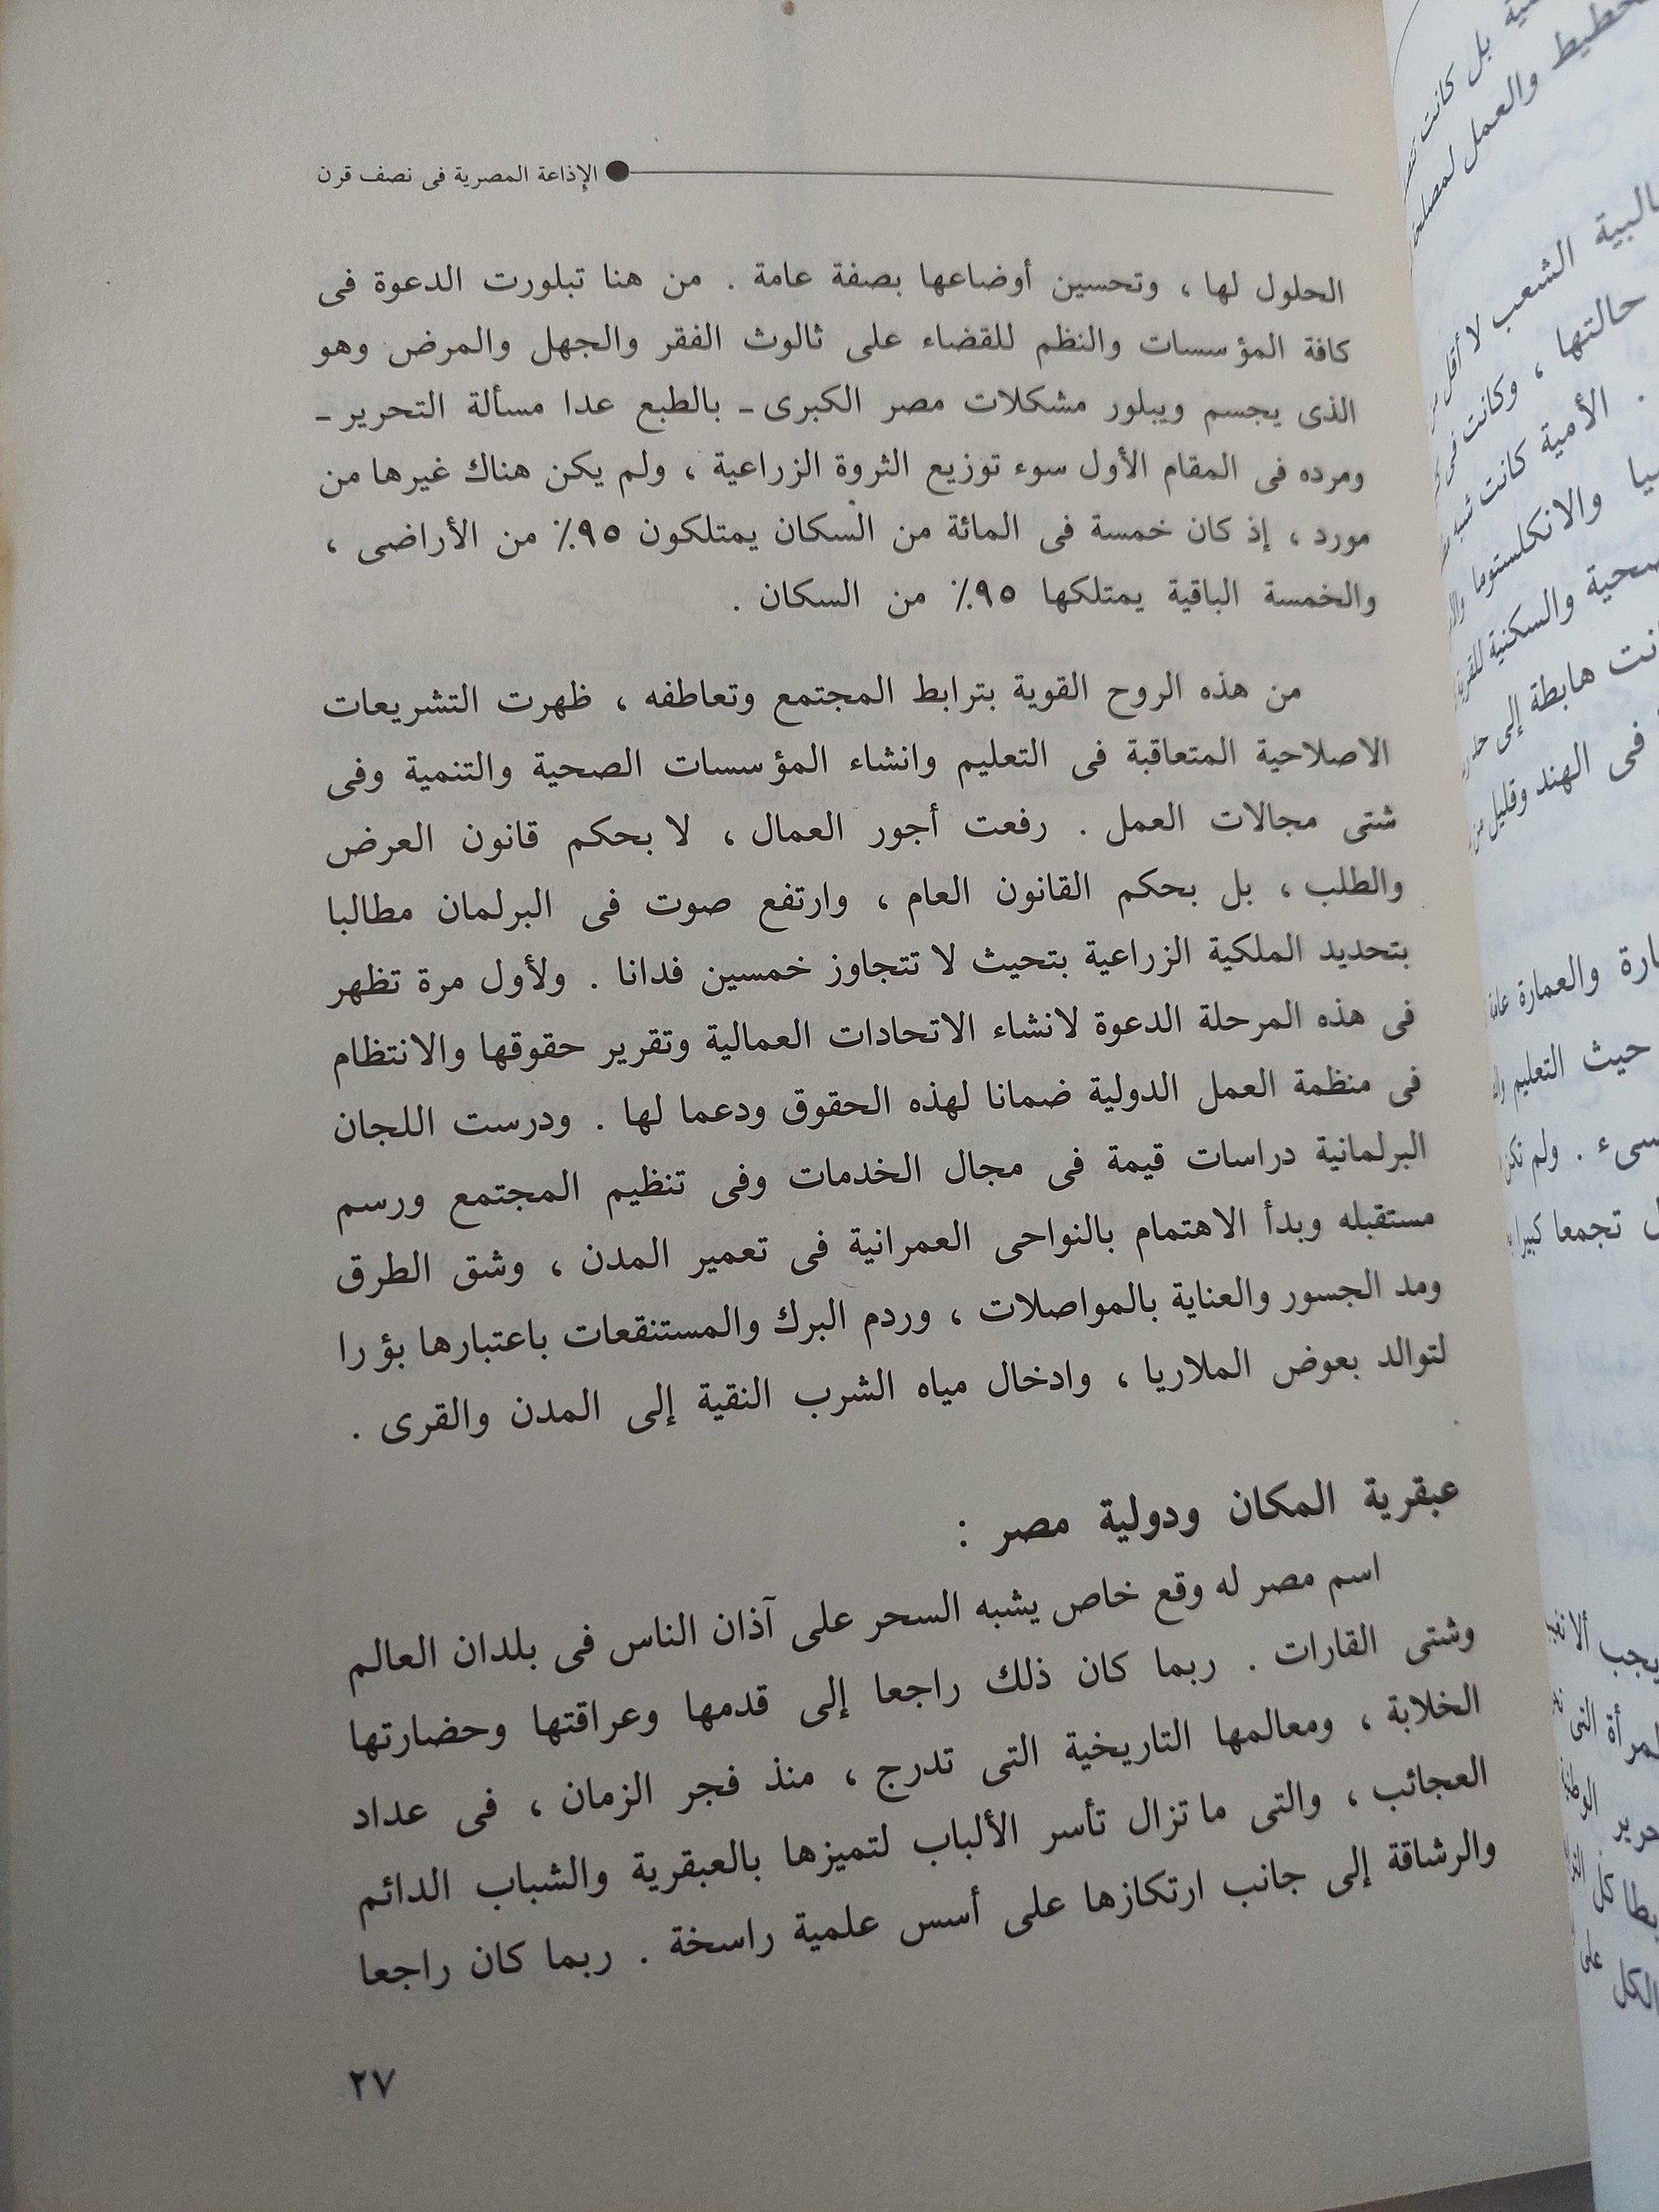 الإذاعة المصرية فى نصف قرن
الحلول لها ، وتحسين أوضاعها بصفة عامة . من هنا تبلورت الدعوة فى
كافة المؤسسات والنظم للقضاء على ثالوث الفقر والجهل والمرض وهو
الذى يجسم ويبلور مشكلات مصر الكبرى ـ بالطبع عدا مسألة التحرير ـ
ومرده فى المقام الأول سوء توزيع الثروة الزراعية ، ولم يكن هناك غيرها من
مورد ، إذ كان خمسة فى المائة من السكان يمتلكون ٩٥٪ من الأراضى ،
والخمسة الباقية يمتلكها ٩٥٪ من السكان .
من هذه الروح القوية بترابط المجتمع وتعاطفه ، ظهرت التشريعات
الاصلاحية المتعاقبة فى التعليم وانشاء المؤسسات الصحية والتنمية وفى
شتى مجالات العمل . رفعت أجور العمال ، لا بحكم قانون العرض
والطلب ، بل بحكم القانون العام ، وارتفع صوت فى البرلمان مطالبا
بتحديد الملكية الزراعية بتحيث لا تتجاوز خمسين فدانا . ولأول مرة تظهر
فى هذه المرحلة الدعوة لانشاء الاتحادات العمالية وتقرير حقوقها والانتظام
فى منظمة العمل الدولية ضمانا لهذه الحقوق ودعما لها . ودرست اللجان
البرلمانية دراسات قيمة فى مجال الخدمات وفى تنظيم المجتمع ورسم
مستقبله وبدأ الاهتمام بالنواحى العمرانية فى تعمير المدن ، وشق الطرق
ومد الجسور والعناية بالمواصلات ، وردم البرك والمستنقعات باعتبارها بؤرا
لتوالد بعوض الملاريا ، وادخال مياه الشرب النقية إلى المدن والقرى .
عبقرية المكان ودولية مصر :
اسم مصر له وقع خاص يشبه السحر على آذان الناس فى بلدان العالم
وشتى القارات . ربما كان ذلك راجعا إلى قدمها وعراقتها وحضارتها
الخلابة ، ومعالمها التاريخية التى تدرج ، منذ فجر الزمان ، فى عداد
العجائب ، والتى ما تزال تأسر الألباب لتميزها بالعبقرية والشباب الدائم
والرشاقة إلى جانب ارتكازها على أسس علمية راسخة . ربما كان راجعا
٢٧
بل كانت
والعمل
الشعب لا أقل
حالتها ، وكانت فى
. الأمية كانت شبه
والانكلستوما
والسكنية
هابطة إلى
فى الهند وقليل من
والعمارة
حيث التعليم
. ولم تكن
تجمعا كبيرا
يجب ألا
التى
كل
الكل على